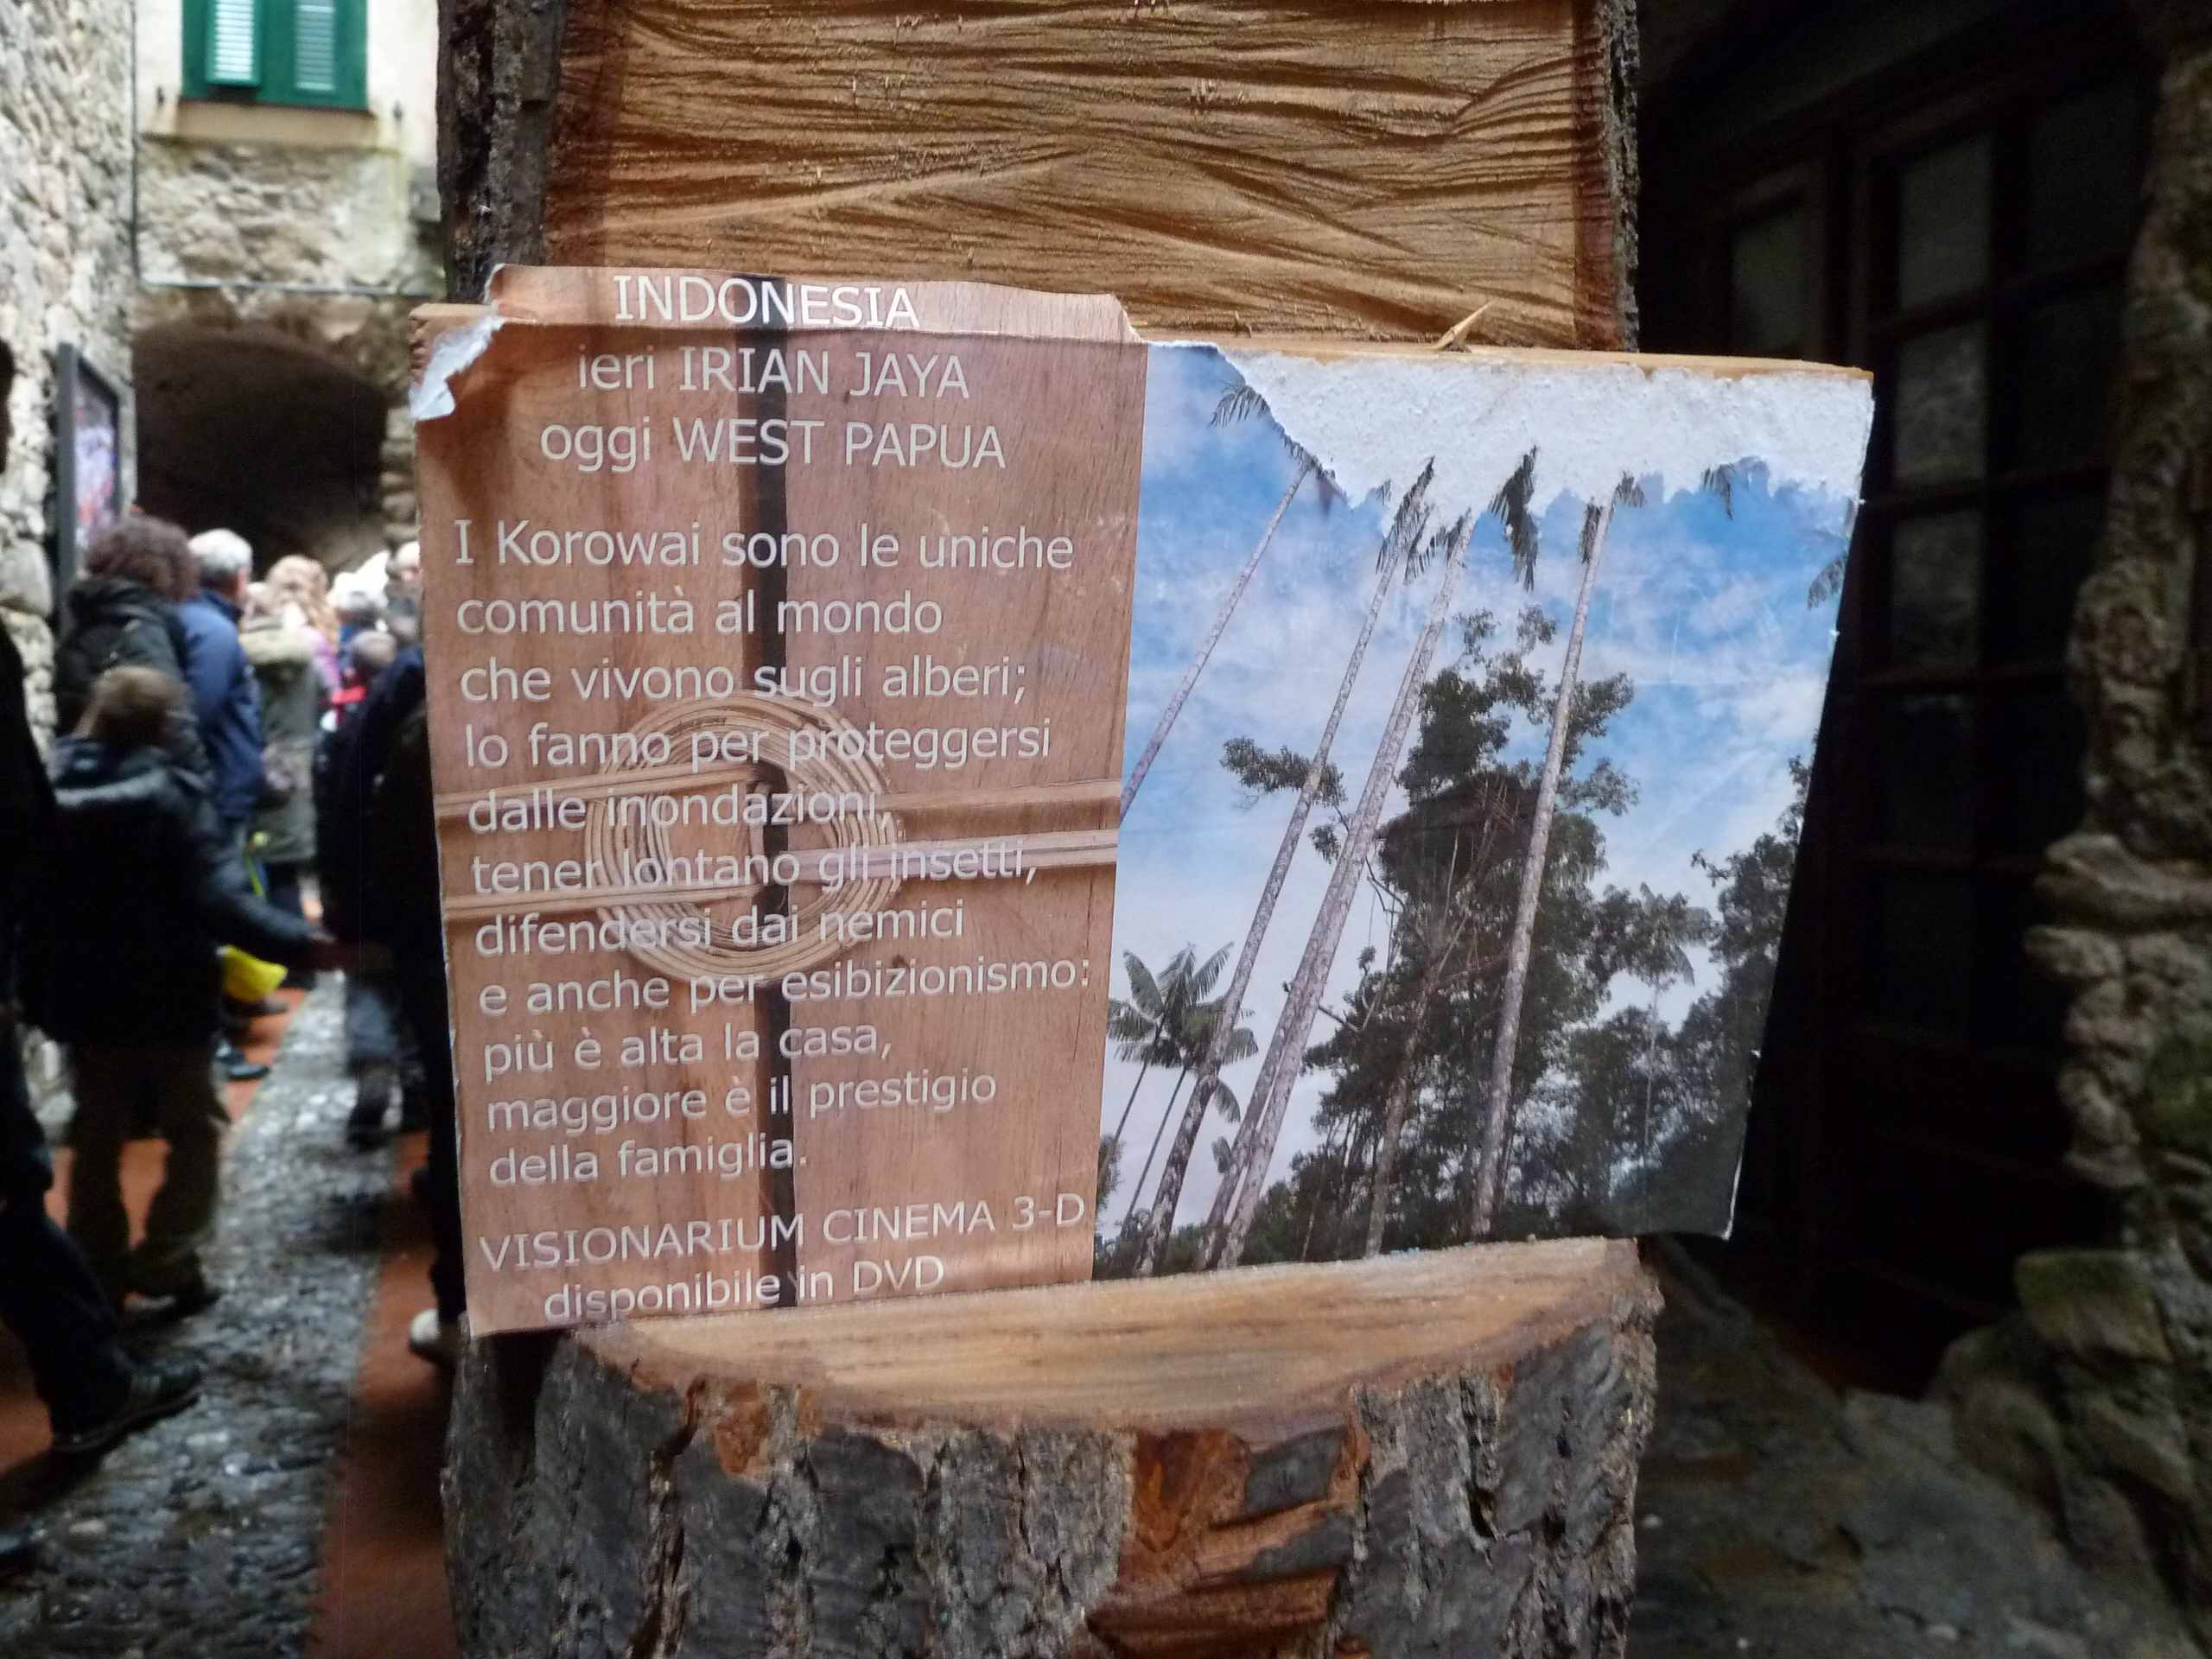 INDONESIA
ieri IRIAN JAYA
oggi WEST PAPUA
I Korowai sono le uniche
comunità al mondo
che vivono sugli alberi;
lo fanno per proteggersi
dalle inondazioni,
tener lontano gli insetti,
difendersi dai nemici
e anche per esibizionismo:
più è alta la casa,
maggiore è il prestigio
della famiglia.
VISIONARIUM CINEMA 3-D
disponibile in DVD